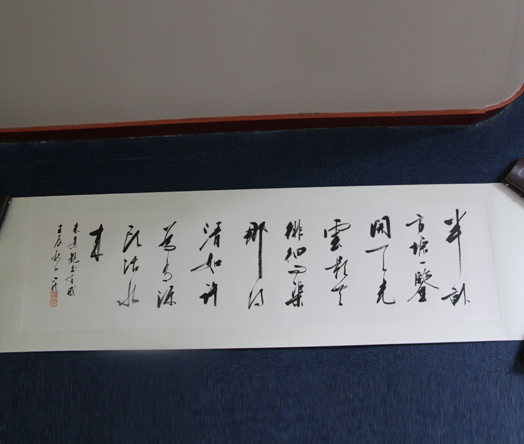 半畝
方塘一鑒
開天光
雲影共
徘徊問渠
那得
清如許
為有源
頭活水
來
朱熹觀書有感